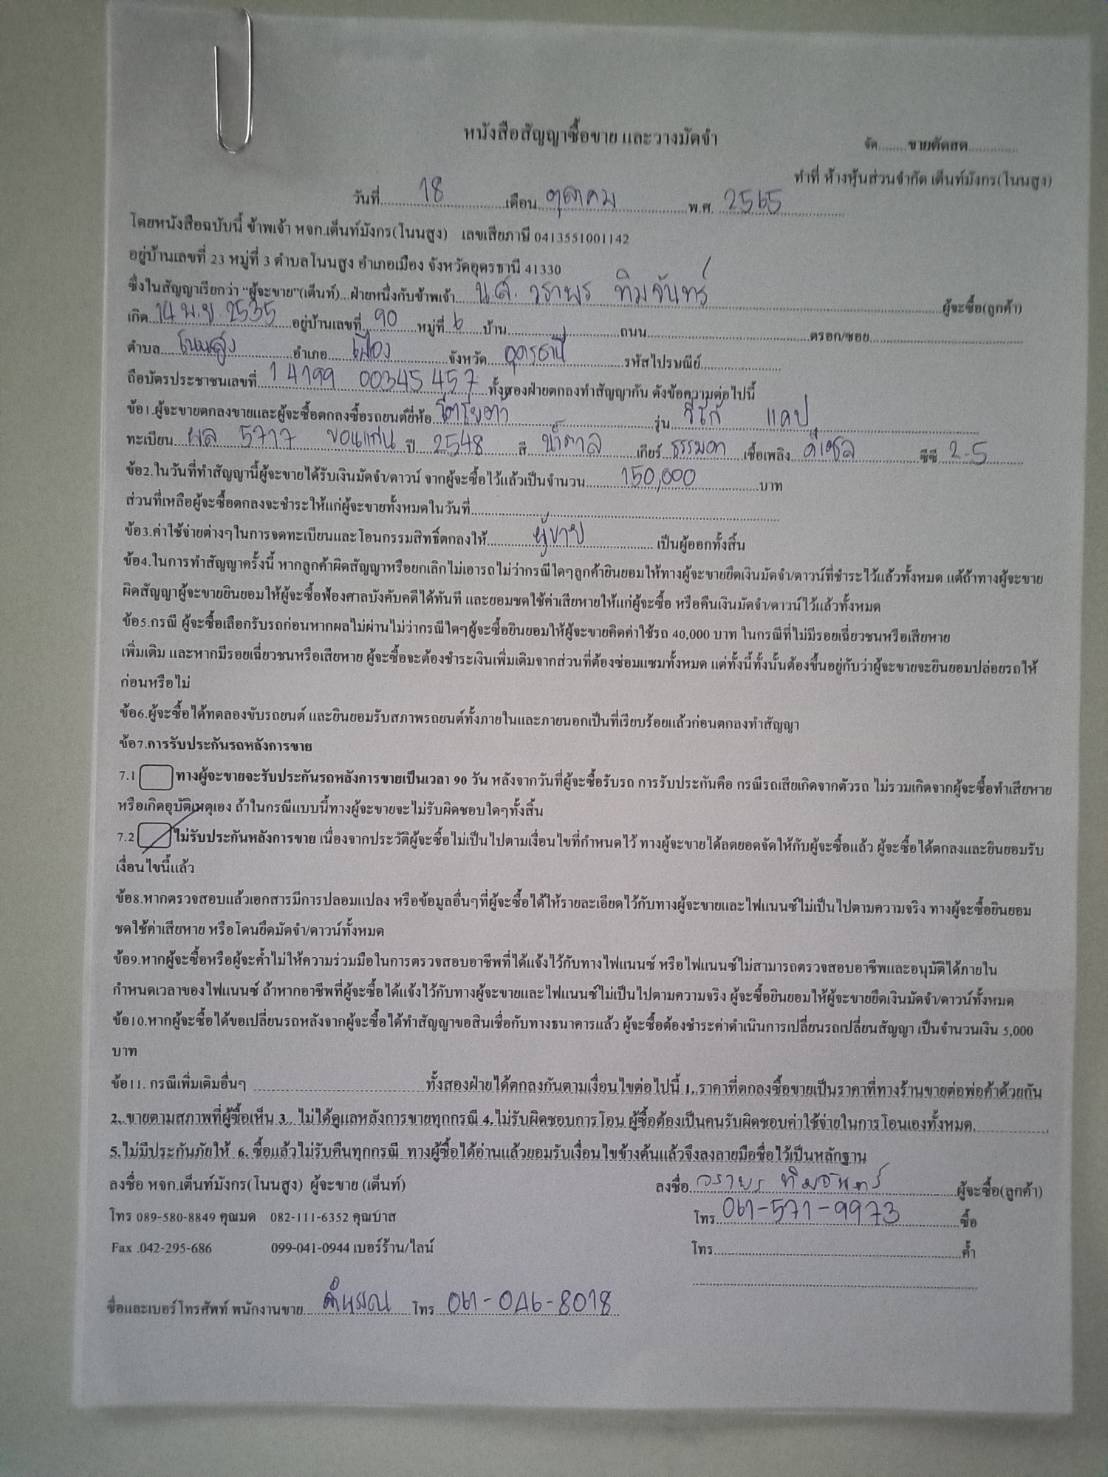 หนังสือสัญญาซื้อขาย และวางมัดจำ
จัด........ขายตัดสด..............
ทำที่ ห้างหุ้นส่วนจำกัด เต็นท์มังกร(โนนสูง)
วันที่ 18 เดือน ตุลาคม พ.ศ. 2565
โดยหนังสือฉบับนี้ ข้าพเจ้า หจก.เต็นท์มังกร(โนนสูง) เลขเสียภาษี 0413551001142
อยู่บ้านเลขที่ 23 หมู่ที่ 3 ตำบลโนนสูง อำเภอเมือง จังหวัดอุดรธานี 41330
ซึ่งในสัญญาเรียกว่า "ผู้จะขาย"(เต็นท์)...ฝ่ายหนึ่งกับข้าพเจ้า น.ศ. วราพร ทิมจันทร์ ผู้จะซื้อ(ลูกค้า)
เกิด 14 พ.ย 2535 อยู่บ้านเลขที่ 90 หมู่ที่ 6 บ้าน ถนน ตรอก/ซอย
ตำบล โนนสูง อำเภอ เมือง จังหวัด อุดรธานี รหัสไปรษณีย์
ถือบัตรประชาชนเลขที่ 1 4199 00345 457 ทั้งสองฝ่ายตกลงทำสัญญากัน ดังข้อความต่อไปนี้
ข้อ1.ผู้จะขายตกลงขายและผู้จะซื้อตกลงซื้อรถยนต์ยี่ห้อ โตโยต้า รุ่น วีโก้ แคป
ทะเบียน ผล 5717 ขอนแก่น ปี 2548 สี น้ำตาล เกียร์ ธรรมดา เชื้อเพลิง ดีเซล ซีซี 2.5
ข้อ2.ในวันที่ทำสัญญานี้ผู้จะขายได้รับเงินมัดจำ/ดาวน์ จากผู้จะซื้อไว้แล้วเป็นจำนวน 150,000 บาท
ส่วนที่เหลือผู้จะซื้อตกลงจะชำระให้แก่ผู้จะขายทั้งหมดในวันที่
ข้อ3.ค่าใช้จ่ายต่างๆในการจดทะเบียนและโอนกรรมสิทธิ์ตกลงให้ ผู้ขาย เป็นผู้ออกทั้งสิ้น
ข้อ4.ในการทำสัญญาครั้งนี้ หากลูกค้าผิดสัญญาหรือยกเลิกไม่เอารถ ไม่ว่ากรณีใดๆลูกค้ายินยอมให้ทางผู้จะขายยึดเงินมัดจำ/ดาวน์ที่ชำระไว้แล้วทั้งหมด แต่ถ้าทางผู้จะขาย
ผิดสัญญาผู้จะขายยินยอมให้ผู้จะซื้อฟ้องศาลบังคับคดีได้ทันที และยอมชดใช้ค่าเสียหายให้แก่ผู้จะซื้อ หรือคืนเงินมัดจำ/ดาวน์ไว้แล้วทั้งหมด
ข้อ5.กรณี ผู้จะซื้อเลือกรับรถก่อนหากผลไม่ผ่านไม่ว่ากรณีใดๆผู้จะซื้อยินยอมให้ผู้จะขายคิดค่าใช้รถ 40,000 บาท ในกรณีที่ไม่มีรอยเฉี่ยวชนหรือเสียหาย
เพิ่มเติม และหากมีรอยเฉี่ยวชนหรือเสียหาย ผู้จะซื้อจะต้องชำระเงินเพิ่มเติมจากส่วนที่ต้องซ่อมแซมทั้งหมด แต่ทั้งนี้ทั้งนั้นต้องขึ้นอยู่กับว่าผู้จะขายจะยินยอมปล่อยรถให้
ก่อนหรือไม่
ข้อ6.ผู้จะซื้อได้ทดลองขับรถยนต์ และยินยอมรับสภาพรถยนต์ทั้งภายในและภายนอกเป็นที่เรียบร้อยแล้วก่อนตกลงทำสัญญา
ข้อ7.การรับประกันรถหลังการขาย
7.1 ทางผู้จะขายจะรับประกันรถหลังการขายเป็นเวลา 90 วัน หลังจากวันที่ผู้จะซื้อรับรถ การรับประกันคือ กรณีรถเสียเกิดจากตัวรถ ไม่รวมเกิดจากผู้จะซื้อทำเสียหาย
หรือเกิดอุบัติเหตุเอง ถ้าในกรณีแบบนี้ทางผู้จะขายจะไม่รับผิดชอบใดๆทั้งสิ้น
7.2 ไม่รับประกันหลังการขาย เนื่องจากประวัติผู้จะซื้อไม่เป็นไปตามเงื่อนไขที่กำหนดไว้ ทางผู้จะขายได้ลดยอดจัดให้กับผู้จะซื้อแล้ว ผู้จะซื้อได้ตกลงและยินยอมรับ
เงื่อนไขนี้แล้ว
ข้อ8.หากตรวจสอบแล้วเอกสารมีการปลอมแปลง หรือข้อมูลอื่นๆที่ผู้จะซื้อได้ให้รายละเอียดไว้กับทางผู้จะขายและไฟแนนซ์ไม่เป็นไปตามความจริง ทางผู้จะซื้อยินยอม
ชดใช้ค่าเสียหาย หรือโดนยึดมัดจำ/ดาวน์ทั้งหมด
ข้อ9.หากผู้จะซื้อหรือผู้จะค้ำไม่ให้ความร่วมมือในการตรวจสอบอาชีพที่ได้แจ้งไว้กับทางไฟแนนซ์ หรือไฟแนนซ์ไม่สามารถตรวจสอบอาชีพและอนุมัติได้ภายใน
กำหนดเวลาของไฟแนนซ์ ถ้าหากอาชีพที่ผู้จะซื้อได้แจ้งไว้กับทางผู้จะขายและไฟแนนซ์ไม่เป็นไปตามความจริง ผู้จะซื้อยินยอมให้ผู้จะขายยึดเงินมัดจำ/ดาวน์ทั้งหมด
ข้อ10.หากผู้จะซื้อได้ขอเปลี่ยนรถหลังจากผู้จะซื้อได้ทำสัญญาขอสินเชื่อกับทางธนาคารแล้ว ผู้จะซื้อต้องชำระค่าดำเนินการเปลี่ยนรถเปลี่ยนสัญญา เป็นจำนวนเงิน 5,000
บาท
ข้อ11. กรณีเพิ่มเติมอื่นๆ ทั้งสองฝ่ายได้ตกลงกันตามเงื่อนไขต่อไปนี้ 1. ราคาที่ตกลงซื้อขายเป็นราคาที่ทางร้านขายต่อพ่อค้าด้วยกัน
2. ขายตามสภาพที่ผู้ซื้อเห็น 3. ไม่ได้ดูแลหลังการขายทุกกรณี 4. ไม่รับผิดชอบการโอน ผู้ซื้อต้องเป็นคนรับผิดชอบค่าใช้จ่ายในการโอนเองทั้งหมด
5. ไม่มีประกันภัยให้ 6. ซื้อแล้วไม่รับคืนทุกกรณี ทางผู้ซื้อได้อ่านแล้วยอมรับเงื่อนไขข้างต้นแล้วจึงลงลายมือชื่อไว้เป็นหลักฐาน
ลงชื่อ หจก.เต็นท์มังกร(โนนสูง) ผู้จะขาย (เต็นท์) ลงชื่อ วราพร ทิมจันทร์ ผู้จะซื้อ(ลูกค้า)
โทร 089-580-8849 คุณมด 082-111-6352 คุณบ่าส โทร 061-571-9973 ซื้อ
Fax .042-295-686 099-041-0944 เบอร์ร้าน/ไลน์ โทร ค้ำ
ชื่อและเบอร์โทรศัพท์ พนักงานขาย โทร 061-046-8018